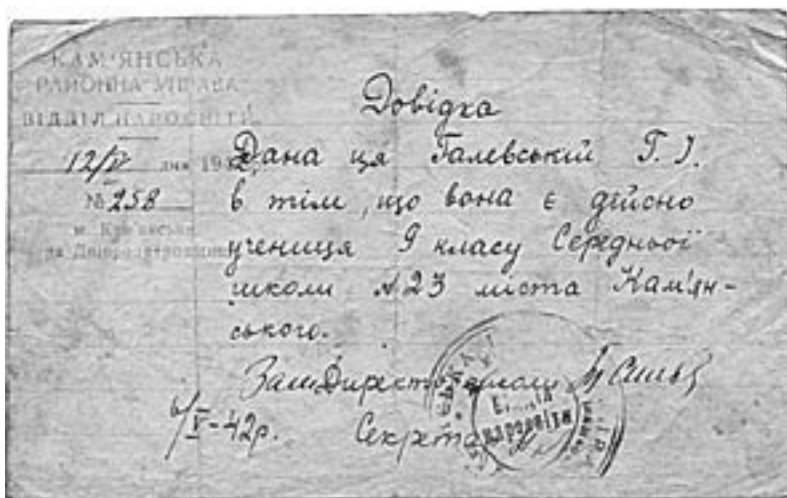 КАМ'ЯНСЬКА
РАЙОННА УПРАВА
ВІДДІЛ НАРОСВІТИ
12/V дня 1942
№ 258
м. Кам'янське
на Дніпропетровщині
Довідка
Дана ця Галевській Г. І.
в тім, що вона є дійсно
учениця 9 класу Середньої
школи №23 міста Кам'ян-
ського.
Зам Директора школи
6/V-42р. Секретар
Відділ
наросвіти